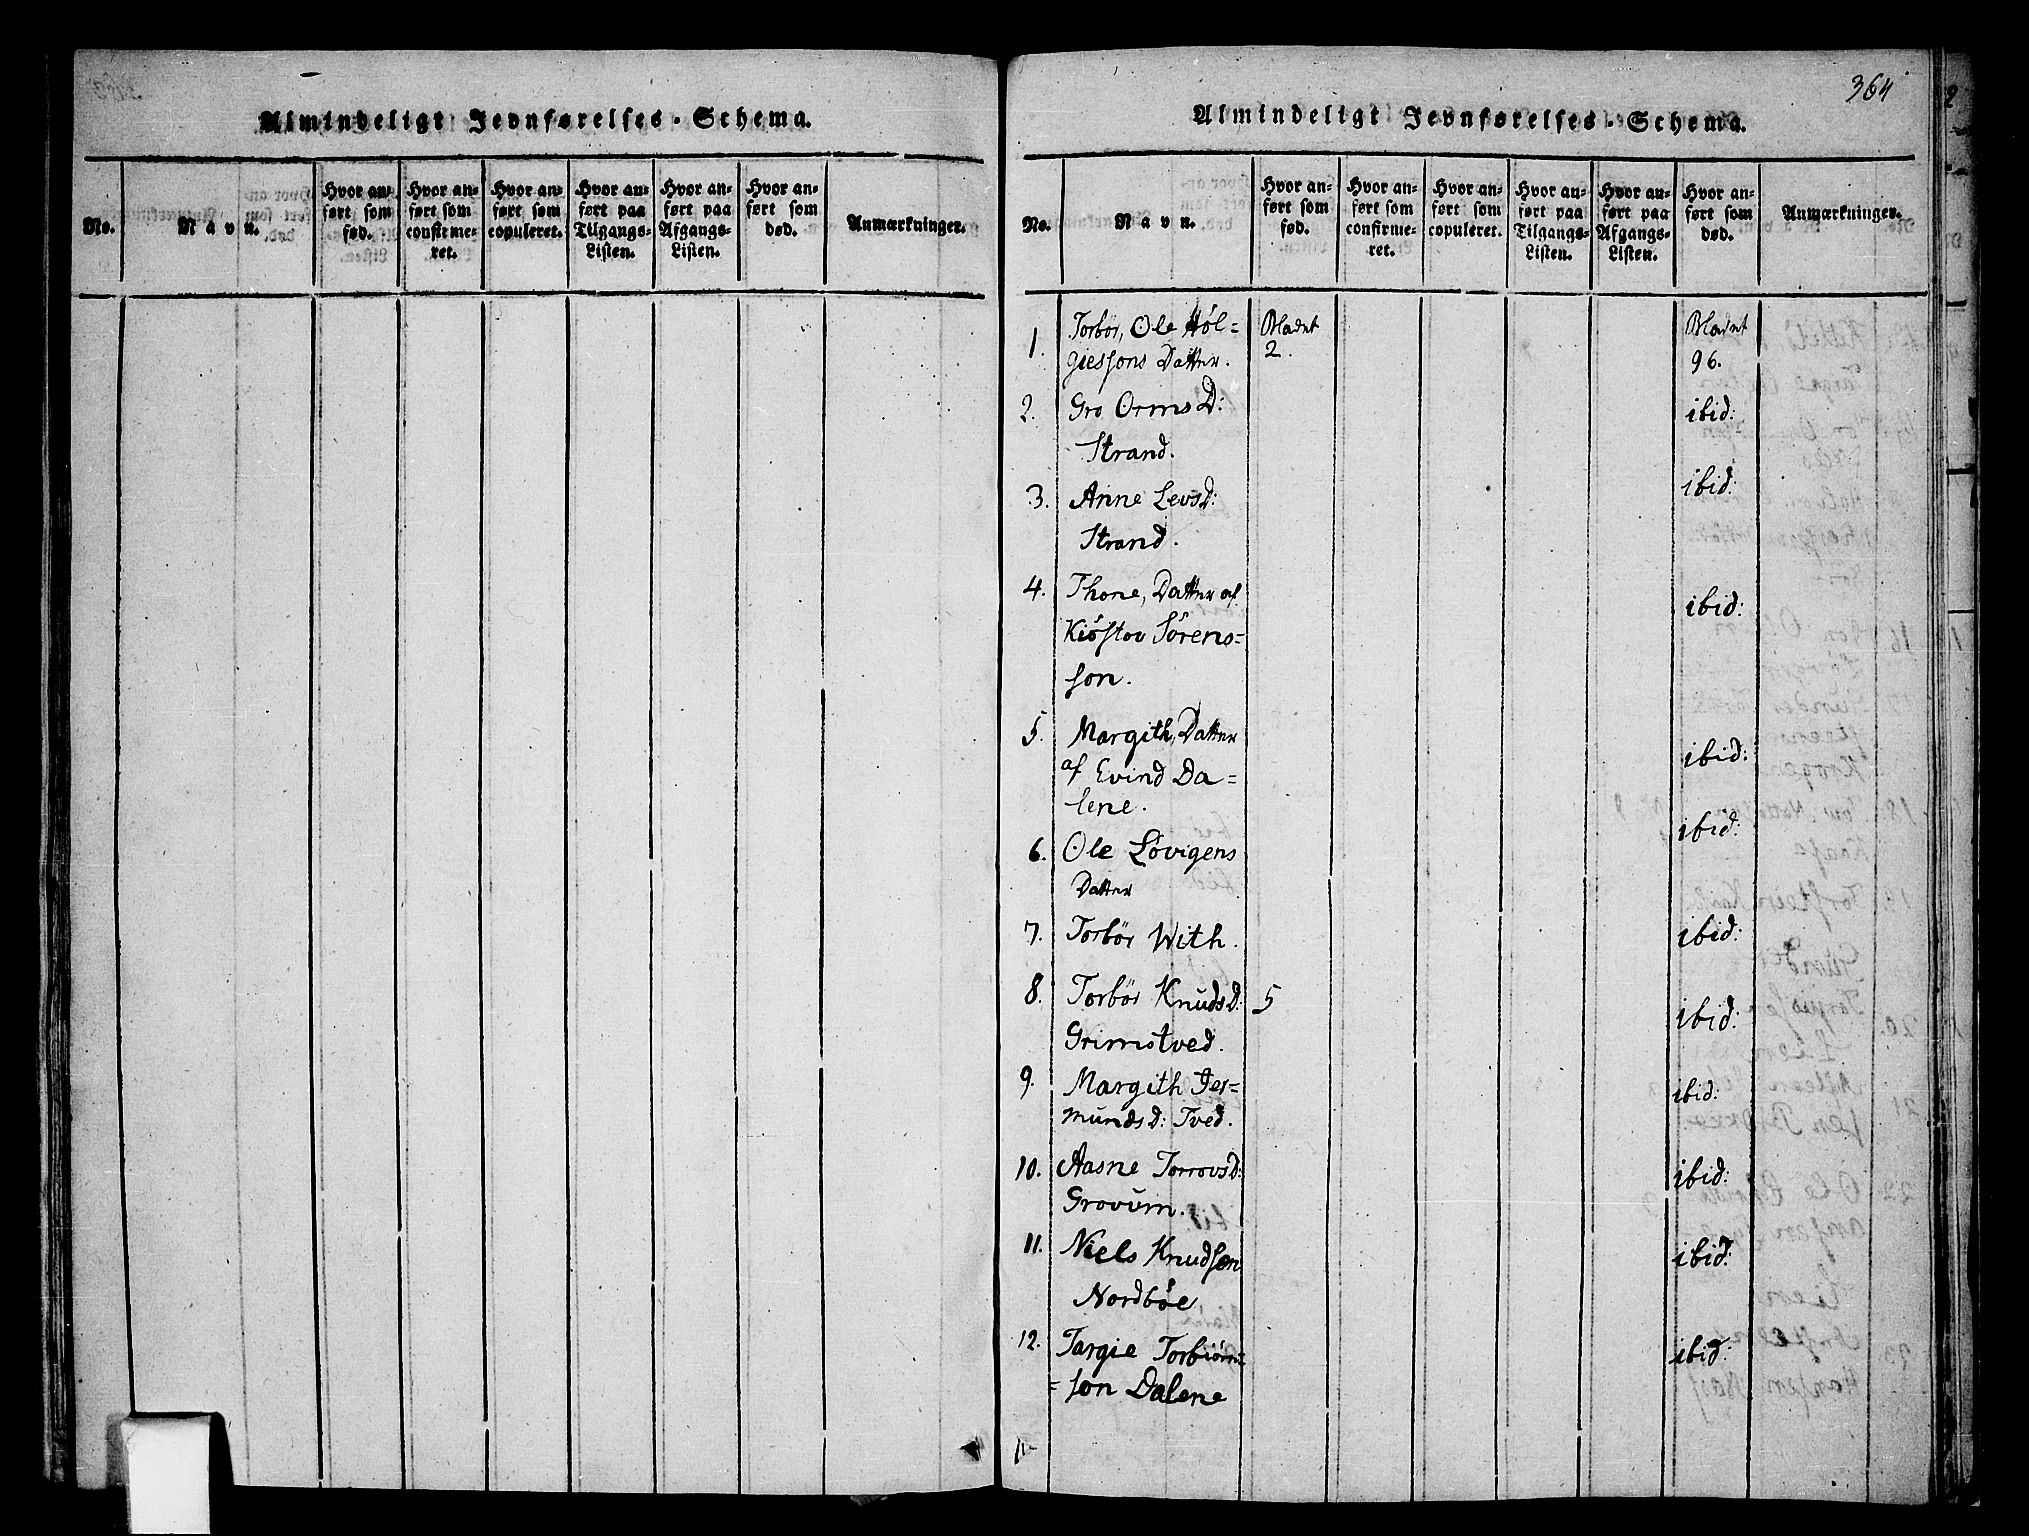 Almindeligt Jevnførelses-Schema.
No.
Navn.
Hvor anført som fød.
Hvor anført som confirmeret.
Hvor anført som copuleret.
Hvor anført paa Tilgangs-Listen.
Hvor anført paa Afgangs-Listen.
Hvor anført som død.
Anmærkninger.
364
Almindeligt Jevnførelses-Schema.
No.
Navn.
Hvor anført som fød.
Hvor anført som confirmeret.
Hvor anført som copuleret.
Hvor anført paa Tilgangs-Listen.
Hvor anført paa Afgangs-Listen.
Hvor anført som død.
Anmærkninger.
1. Torbör, Ole Höl= Bladet Bladet
giessons Datter. 2. 96.
2. Gro Orms D: ibid:
Strand.
3. Anne Levsd: ibid:
Strand.
4. Thone, Datter af ibid:
Kiöstov Sörens=
son.
5. Margith, Datter
af Evind Da= ibid:
lene.
6. Ole Lövigens ibid:
Datter
7. Torbör With. ibid:
8. Torbör Knudsd: 5 ibid:
Grimstved.
9. Margith Jer= ibid:
mundsd: Tved.
10. Aasne Torrovsd: ibid:
Grovum.
11. Niels Knudsen ibid:
Nordböe
12. Targie Torbiörn= ibid:
=son Dalene